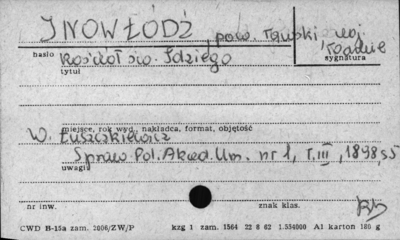 INOWŁÓDŹ, pow. rawski woj. Łódzkie
hasło Kościół św. Idziego
sygnatura
tytuł
miejsce, rok wyd., nakładca, format, objętość
W. Łuszczkiewicz
Spraw. Pol. Akad. Um. nr 1, T. III, 1898 s 5
uwagi
nr inw. znak klas.
CWD H-15a zam. 3006/ZW/P kzg 1 zam. 1564 22 8 62 1.554000 A1 karton 180 g